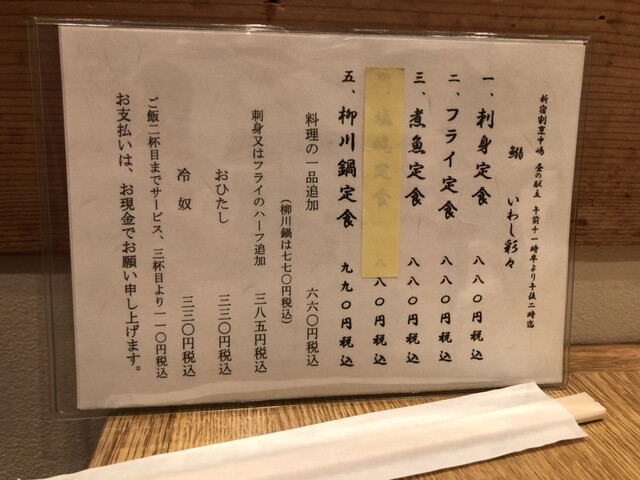 新宿割烹中嶋 昼の献立 午前十一時半より午後二時迄
鰯 いわし彩々
一、刺身定食 八八〇円税込
二、フライ定食 八八〇円税込
三、煮魚定食 八八〇円税込
四、塩焼定食 八八〇円税込
五、柳川鍋定食 九九〇円税込
料理の一品追加 六六〇円税込
（柳川鍋は七七〇円税込）
刺身又はフライのハーフ追加 三八五円税込
おひたし 三三〇円税込
冷奴 三三〇円税込
ご飯二杯目までサービス、三杯目より一一〇円税込
お支払いは、お現金でお願い申し上げます。